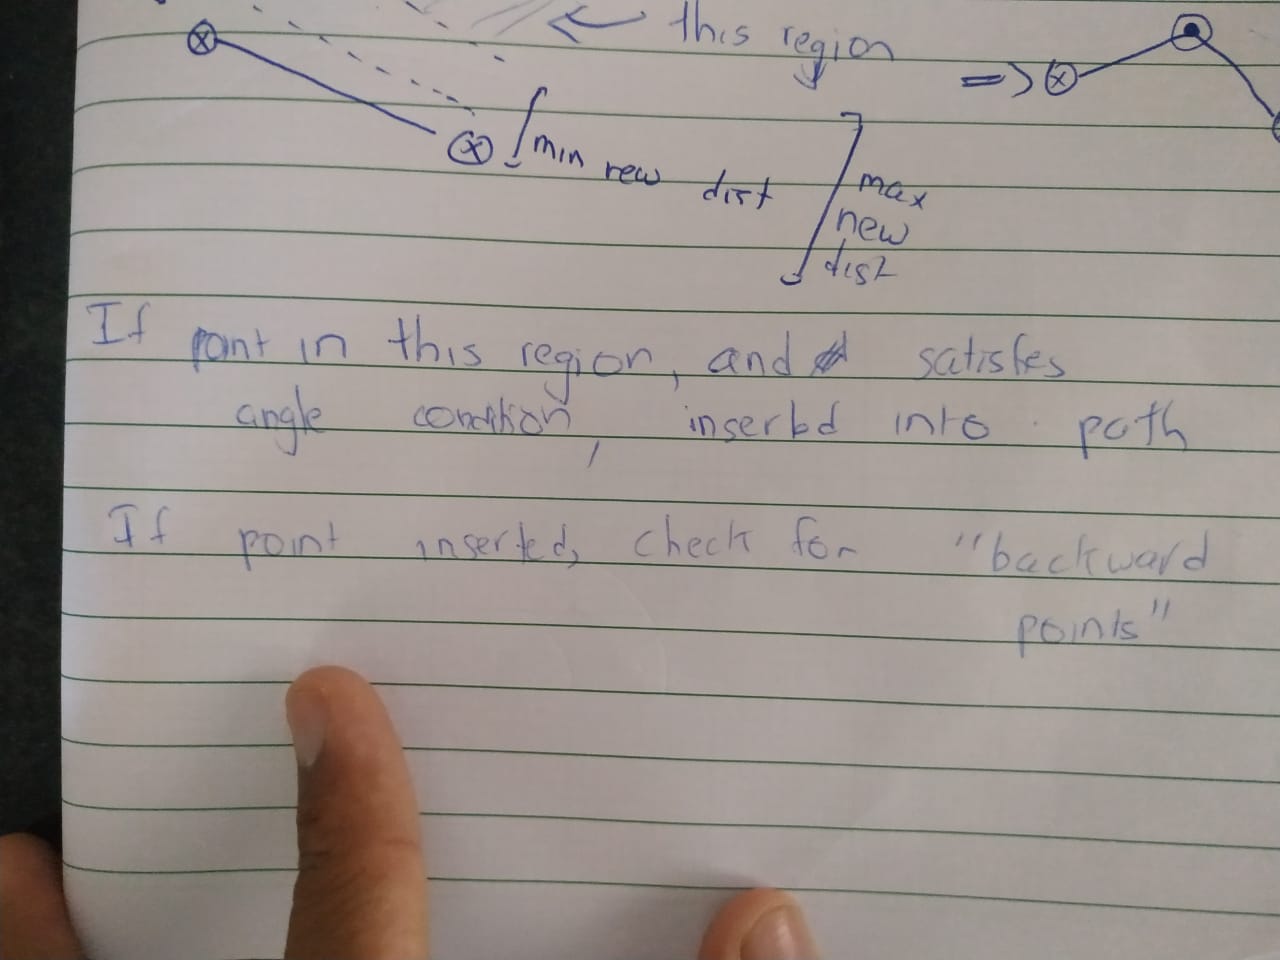 this region
=>
min new dist
max
new
dist
If point in this region, and satisfes
angle condition, inserted into path
If point inserted, check for "backward
points"